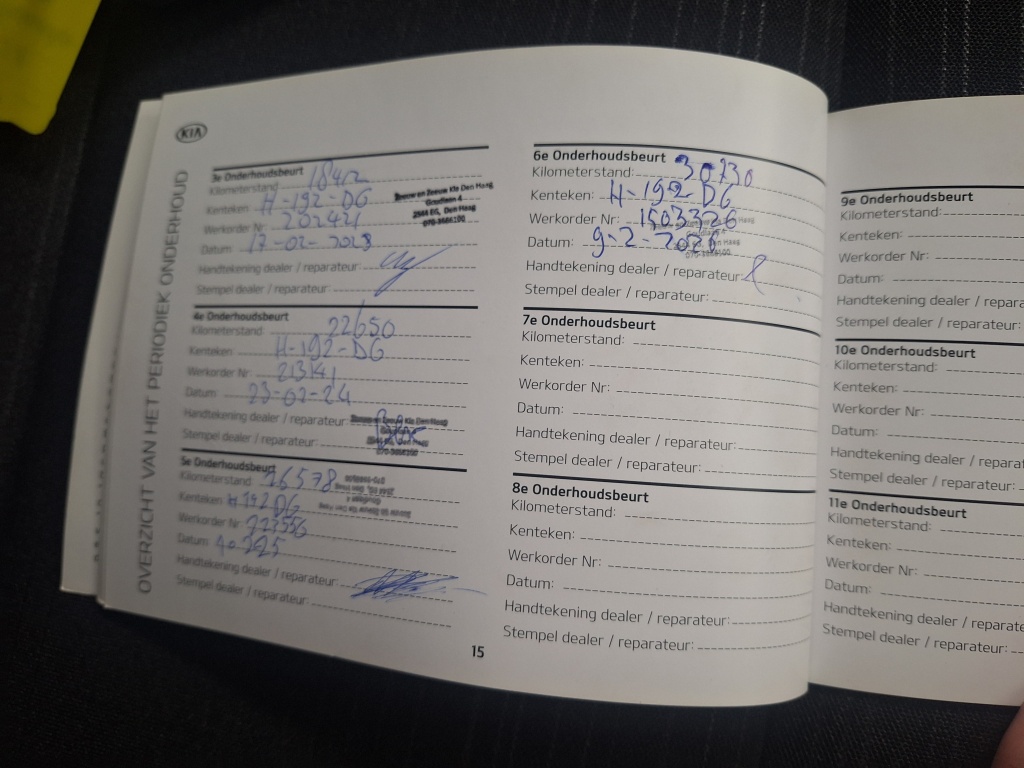 KIA
OVERZICHT VAN HET PERIODIEK ONDERHOUD
3e Onderhoudsbeurt
Kilometerstand
Kenteken H-192-DG
Werkorder Nr: 202421
Datum: 17-02-2023
Handtekening dealer / reparateur:
Stempel dealer / reparateur:
Bouw en Zeeuw Kia Den Haag
Goudlaan 4
2544 EG, Den Haag
070-3666100
4e Onderhoudsbeurt
Kilometerstand 22650
Kenteken H-192-DG
Werkorder Nr: 213141
Datum 23-02-24
Handtekening dealer / reparateur:
Stempel dealer / reparateur:
5e Onderhoudsbeurt
Kilometerstand 26578
Kenteken H192DG
Werkorder Nr:
Datum
Handtekening dealer / reparateur:
Stempel dealer / reparateur:
15
6e Onderhoudsbeurt
Kilometerstand: 30730
Kenteken: H-192-DG
Werkorder Nr: 1503326
Datum: 9-2-2026
Handtekening dealer / reparateur:
Stempel dealer / reparateur:
7e Onderhoudsbeurt
Kilometerstand:
Kenteken:
Werkorder Nr:
Datum:
Handtekening dealer / reparateur:
Stempel dealer / reparateur:
8e Onderhoudsbeurt
Kilometerstand:
Kenteken:
Werkorder Nr:
Datum:
Handtekening dealer / reparateur:
Stempel dealer / reparateur:
9e Onderhoudsbeurt
Kilometerstand:
Kenteken:
Werkorder Nr:
Datum:
Handtekening dealer / repara
Stempel dealer / reparateur:
10e Onderhoudsbeurt
Kilometerstand:
Kenteken:
Werkorder Nr:
Datum:
Handtekening dealer / reparat
Stempel dealer / reparateur:
11e Onderhoudsbeurt
Kilometerstand:
Kenteken:
Werkorder Nr:
Datum:
Handtekening dealer / reparate
Stempel dealer / reparateur: